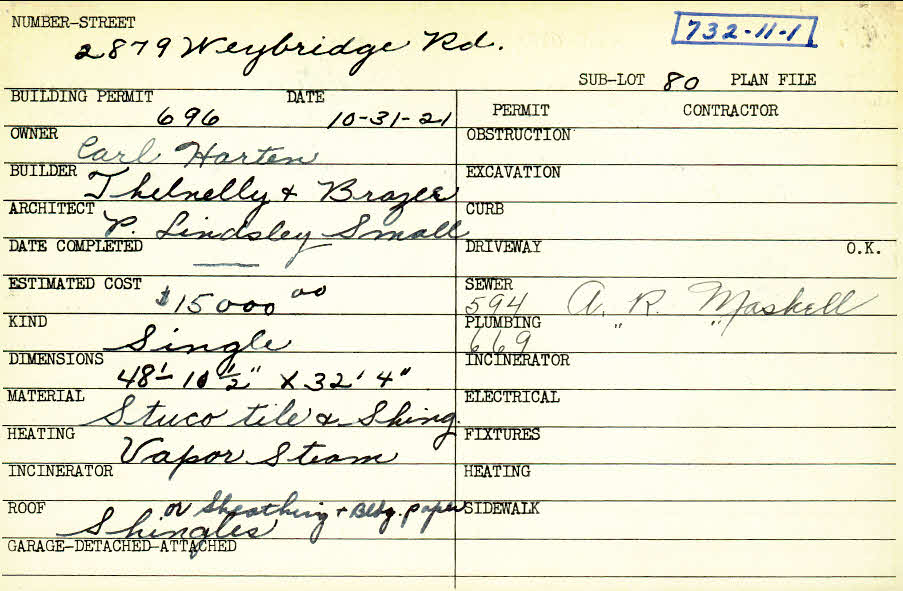 NUMBER-STREET
2879 Weybridge Rd.
732-11-1
SUB-LOT 80 PLAN FILE
BUILDING PERMIT DATE
696 10-31-21
PERMIT CONTRACTOR
OWNER
Carl Harten
OBSTRUCTION
BUILDER
& Brazee
EXCAVATION
ARCHITECT
P. Lindsley Small
CURB
DATE COMPLETED
—
DRIVEWAY O.K.
ESTIMATED COST
$15000 00
SEWER
594 A. R. Maskell
KIND
Single
PLUMBING
669 " "
DIMENSIONS
48'- 10 1/2" X 32' 4"
INCINERATOR
MATERIAL
Stuco tile & Shing.
ELECTRICAL
HEATING
Vapor Steam
FIXTURES
INCINERATOR
HEATING
ROOF
Shingles on Sheathing + Bldg. paper
SIDEWALK
GARAGE-DETACHED-ATTACHED